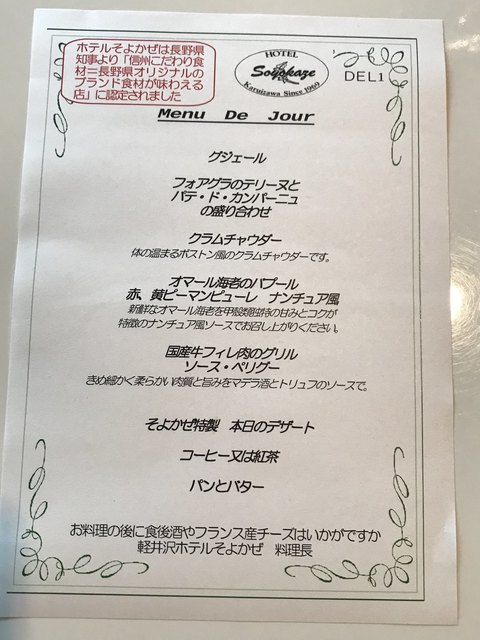 ホテルそよかぜは長野県
知事より「信州こだわり食
材=長野県オリジナルの
ブランド食材が味わえる
店」に認定されました
HOTEL
Soyokaze
Karuizawa Since 1969
DEL1
Menu De Jour
グジェール
フォアグラのテリーヌと
パテ・ド・カンパーニュ
の盛り合わせ
クラムチャウダー
体の温まるボストン風のクラムチャウダーです。
オマール海老のバプール
赤、黄ピーマンピューレ ナンチュア風
新鮮なオマール海老を甲殻類独特の甘みとコクが
特徴のナンチュア風ソースでお召し上がりください。
国産牛フィレ肉のグリル
ソース・ペリグー
きめ細かく柔らかい肉質と旨みをマデラ酒とトリュフのソースで。
そよかぜ特製 本日のデザート
コーヒー又は紅茶
パンとバター
お料理の後に食後酒やフランス産チーズはいかがですか
軽井沢ホテルそよかぜ 料理長